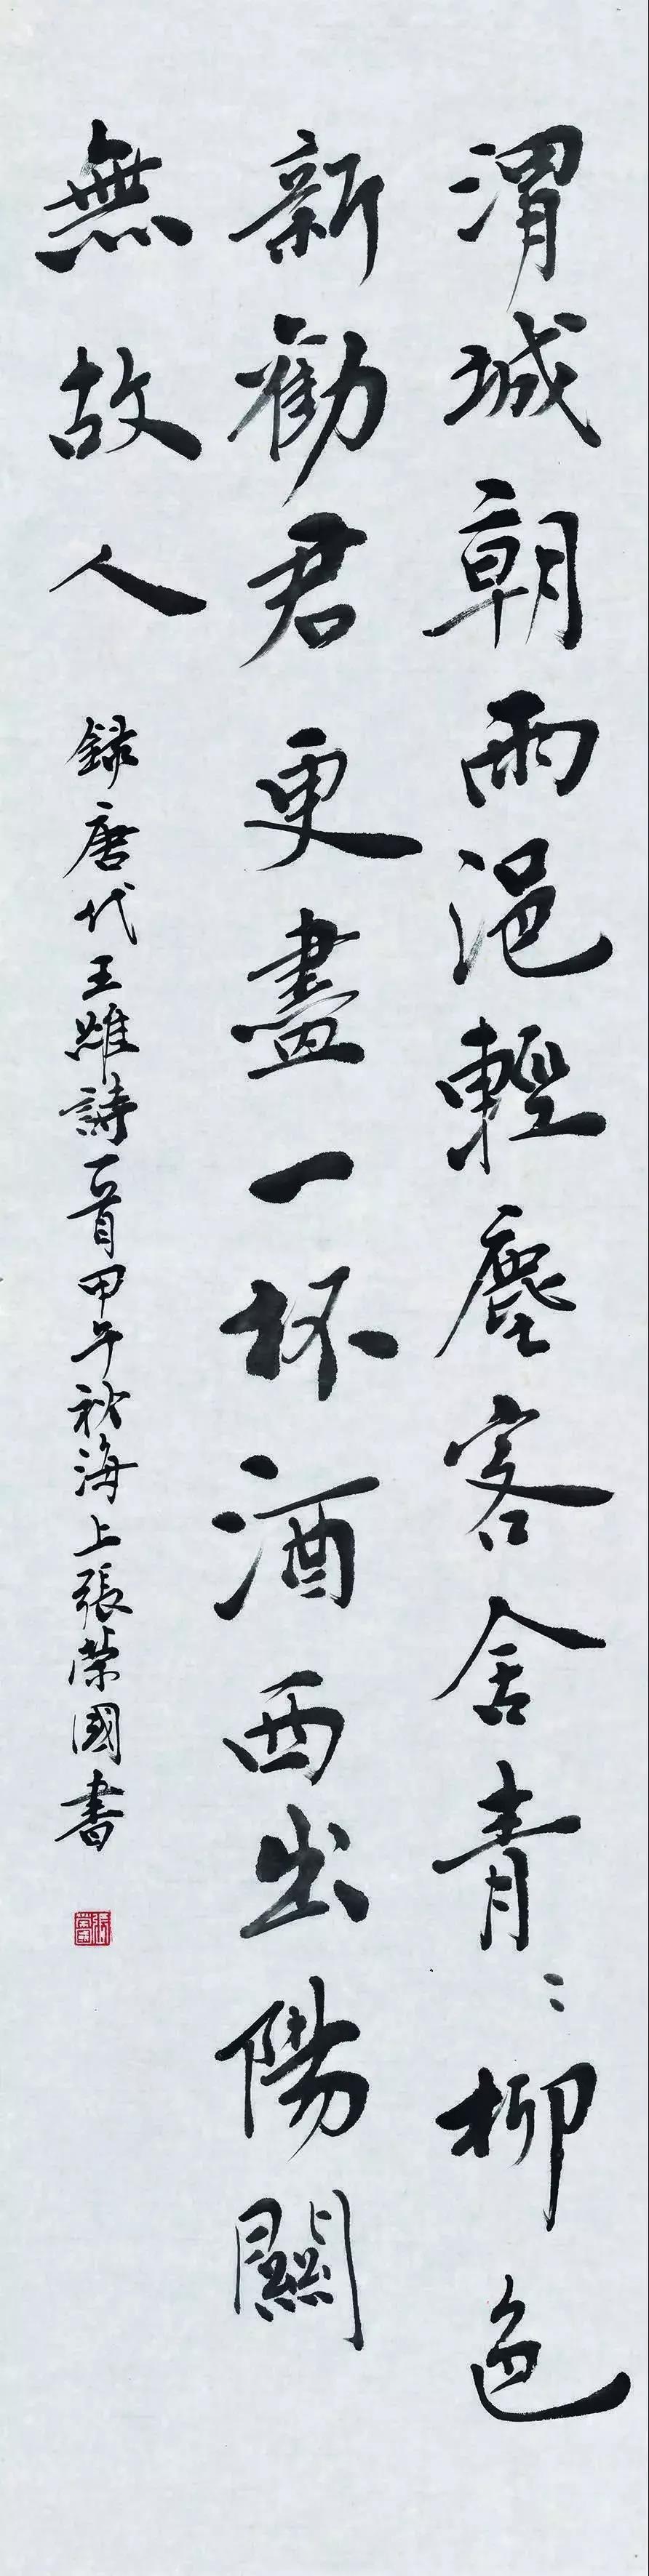 渭城朝雨浥輕塵客舍青〻柳色
新勸君更盡一杯酒西出陽關
無故人
錄唐代王維詩一首甲午秋海上張榮國書